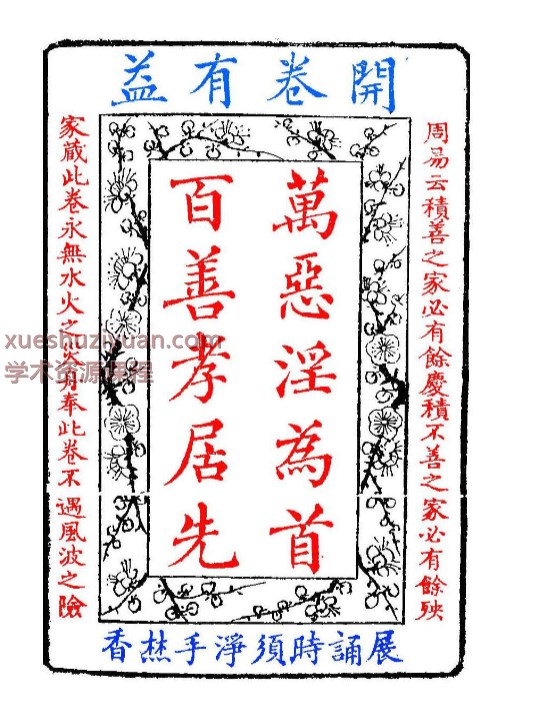 開卷有益
周易云積善之家必有餘慶積不善之家必有餘殃
萬惡淫為首
百善孝居先
家藏此卷永無水火之災身奉此卷不遇風波之險
展誦時須淨手焚香
xueshuziyuan.com
学术资源课程